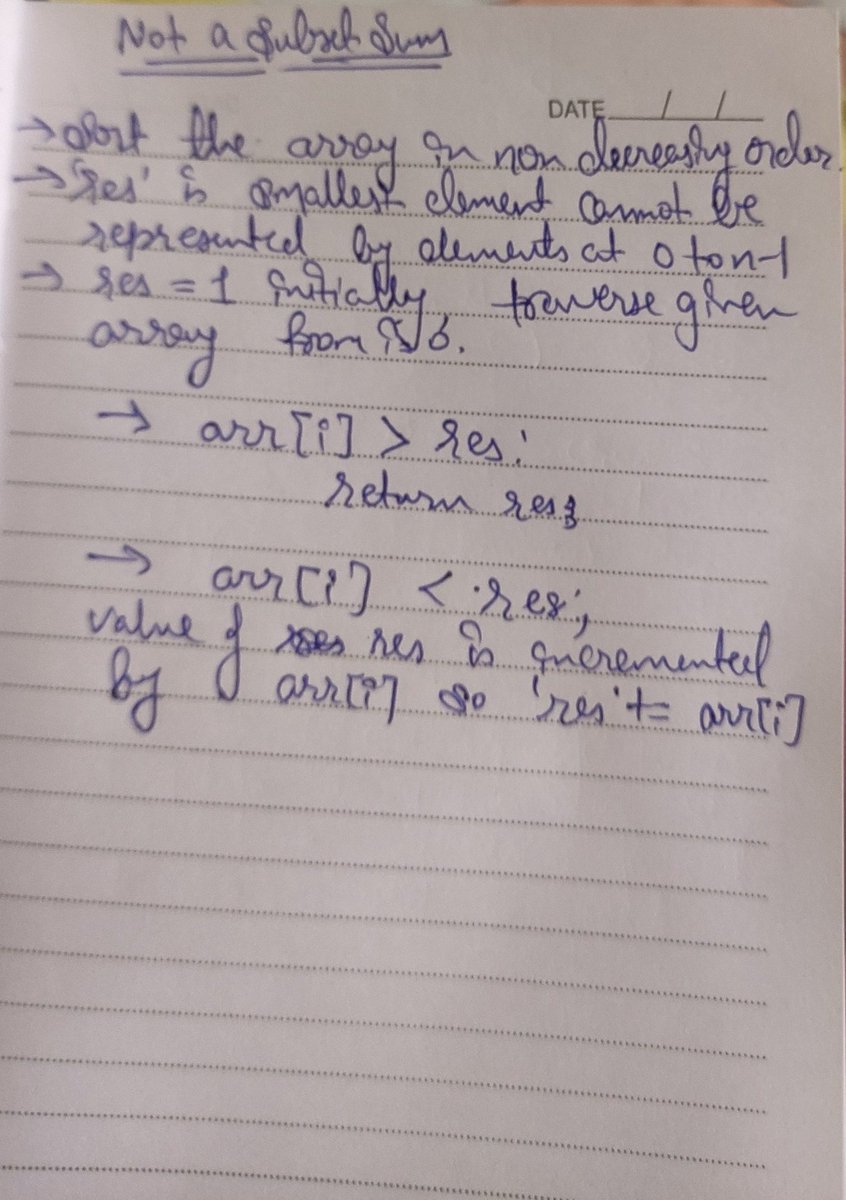 Not a Subset Sum
DATE / /
→ Sort the array in non decreasing order.
→ 'res' is smallest element cannot be
represented by elements at 0 to n-1
→ res = 1 initially, traverse given
array from i
→ arr[i] > res:
return res;
→ arr[i] < res;
value of res is incremented
by arr[i] so 'res' += arr[i]